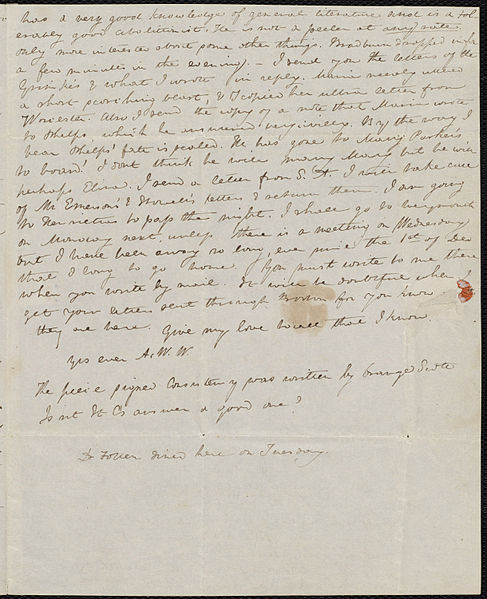 has a very good knowledge of general literature and is a tol-
erably good abolitionist. He is not a peeler at any rate
only more interested about some other things. Bradburn dropped in for
a few minutes in the evening). - I send you the letters of the
& what I wrote in reply. Maria merely wrote
a short and I copied her letter from
Worcester. Also I send the copy of a note that Maria wrote
to Phelps, which he answered very civilly. By the way I
hear Phelps' fate is sealed. He has gone to Mary Parker's
to board! I dont think he will marry Mary but he will
perhaps Eliza. I send a letter from S. A. I will take care
of Mr Emerson's & letters & return them. I am going
to Henrietta's to pass the night. I shall go to Weymouth
on Monday next, unless there is a meeting on Wednesday
but I have been away so long, ever since the 1st of Dec
that I long to go home. You must write to me there
when you write by mail. It will be doubtful when I
get your letters sent through Boston for you know
they are here. Give my love to all that I know.
Yrs ever A. W. W.
The piece signed Consistency was written by Orange Scott
Is not answer a good one?
Dr Follen dined here on Tuesday.